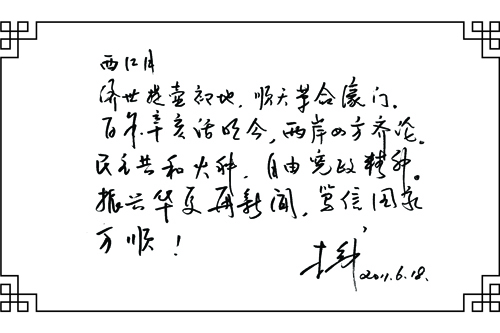 西江月
济世壶地,顺天革门。
百年辛亥话如今,两岸四方齐论。
民主共和火种,自由宪政精神。
振兴华夏再新闻,笃信国家
万顺!
2011.6.18.